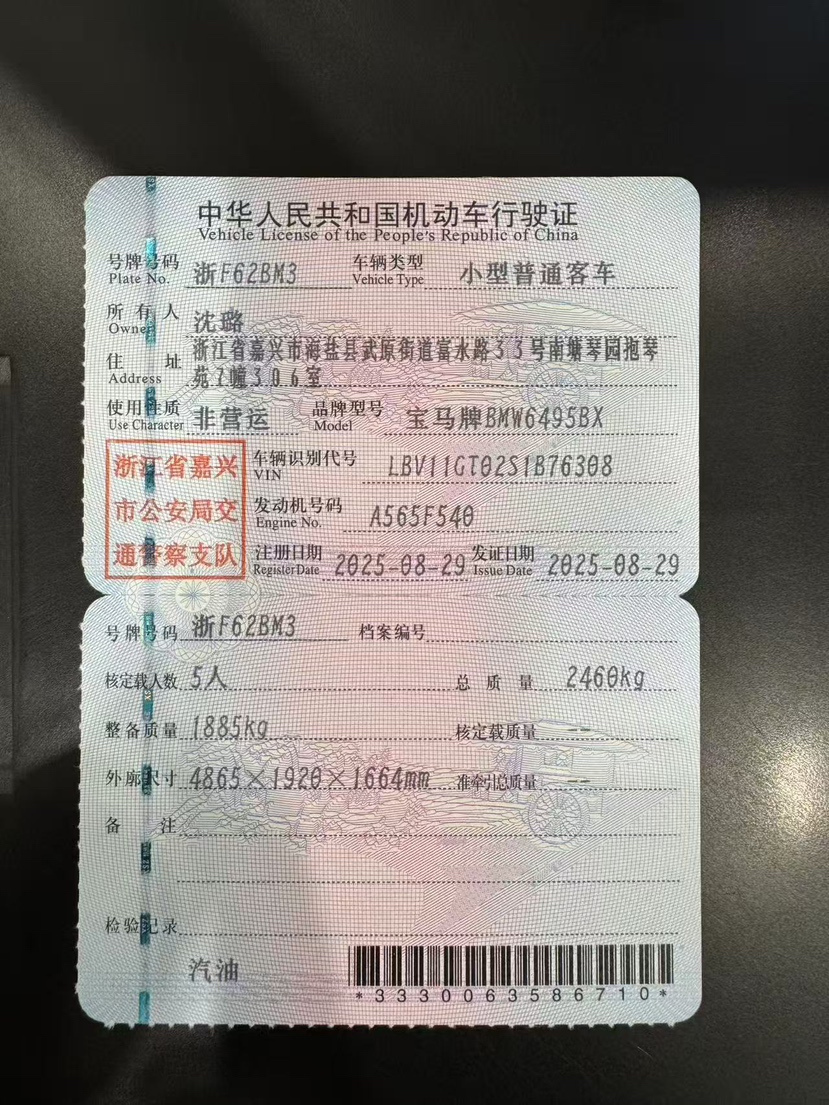 中华人民共和国机动车行驶证
Vehicle License of the People's Republic of China
号牌号码 浙F62BM3 车辆类型 小型普通客车
Plate No. Vehicle Type
所有人 沈璐
Owner
住址 浙江省嘉兴市海盐县武原街道富水路33号南塘琴园抱琴
Address 苑7幢306室
使用性质 非营运 品牌型号 宝马牌BMW6495BX
Use Character Model
浙江省嘉兴
市公安局交
通警察支队
车辆识别代号 LBV11GT02S1B76308
VIN
发动机号码 A565F540
Engine No.
注册日期 2025-08-29 发证日期 2025-08-29
Register Date Issue Date
号牌号码 浙F62BM3 档案编号
核定载人数 5人 总质量 2460kg
整备质量 1885kg 核定载质量 --
外廓尺寸 4865×1920×1664mm 准牵引总质量 --
备注
检验记录
汽油
*3330063586710*